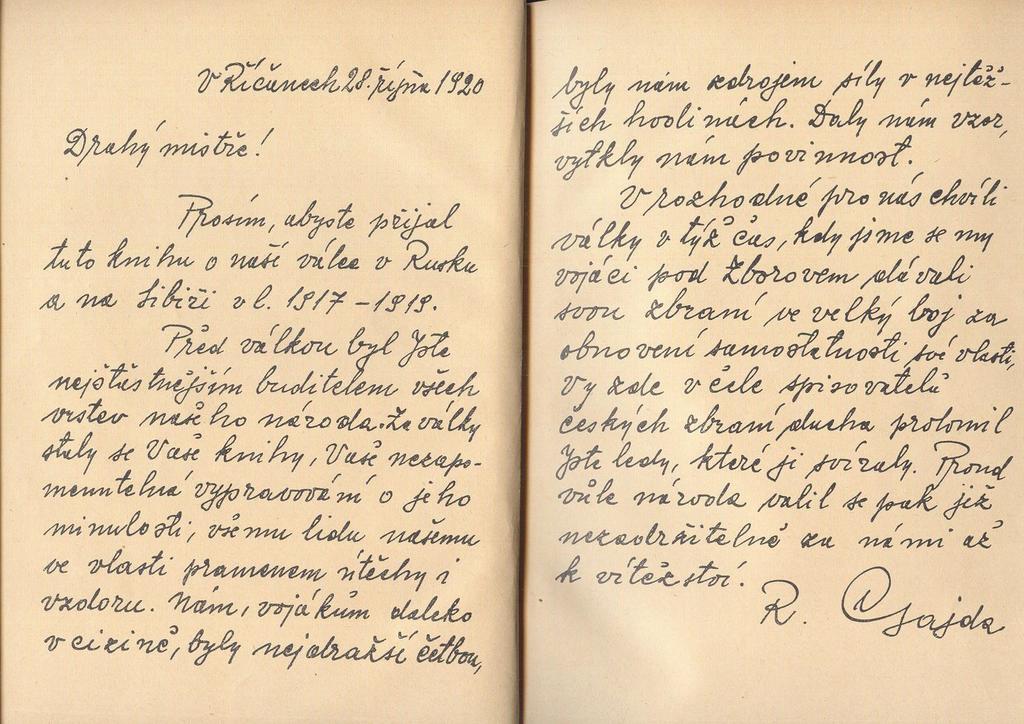 V Říčanech 28. října 1920
Drahý mistře!
Prosím, abyste přijal
tuto knihu o naší válce v Rusku
a na Sibiři v l. 1917-1919.
Před válkou byl Jste
nejšťastnějším buditelem všech
vrstev našeho národa. Za války
staly se Vaše knihy, Vaše nezapo-
menutelná vypravování o jeho
minulosti, všemu lidu našemu
ve vlasti pramenem útěchy i
vzdoru. Nám, vojákům daleko
v cizině, byly nejdražší četbou,
byly nám zdrojem síly v nejtěž-
ších hodinách. Daly nám vzor,
vytkly nám povinnost.
V rozhodné pro nás chvíli
války v týž čas, kdy jsme se my
vojáci pod Zborovem dávali
svou zbraní ve velký boj za
obnovení samostatnosti své vlasti,
Vy zde v čele spisovatelů
českých zbraní ducha prolomil
Jste ledy, které ji svíraly. Proud
vůle národa valil se pak již
nezadržitelně za námi až
k vítězství.
R. Gajda